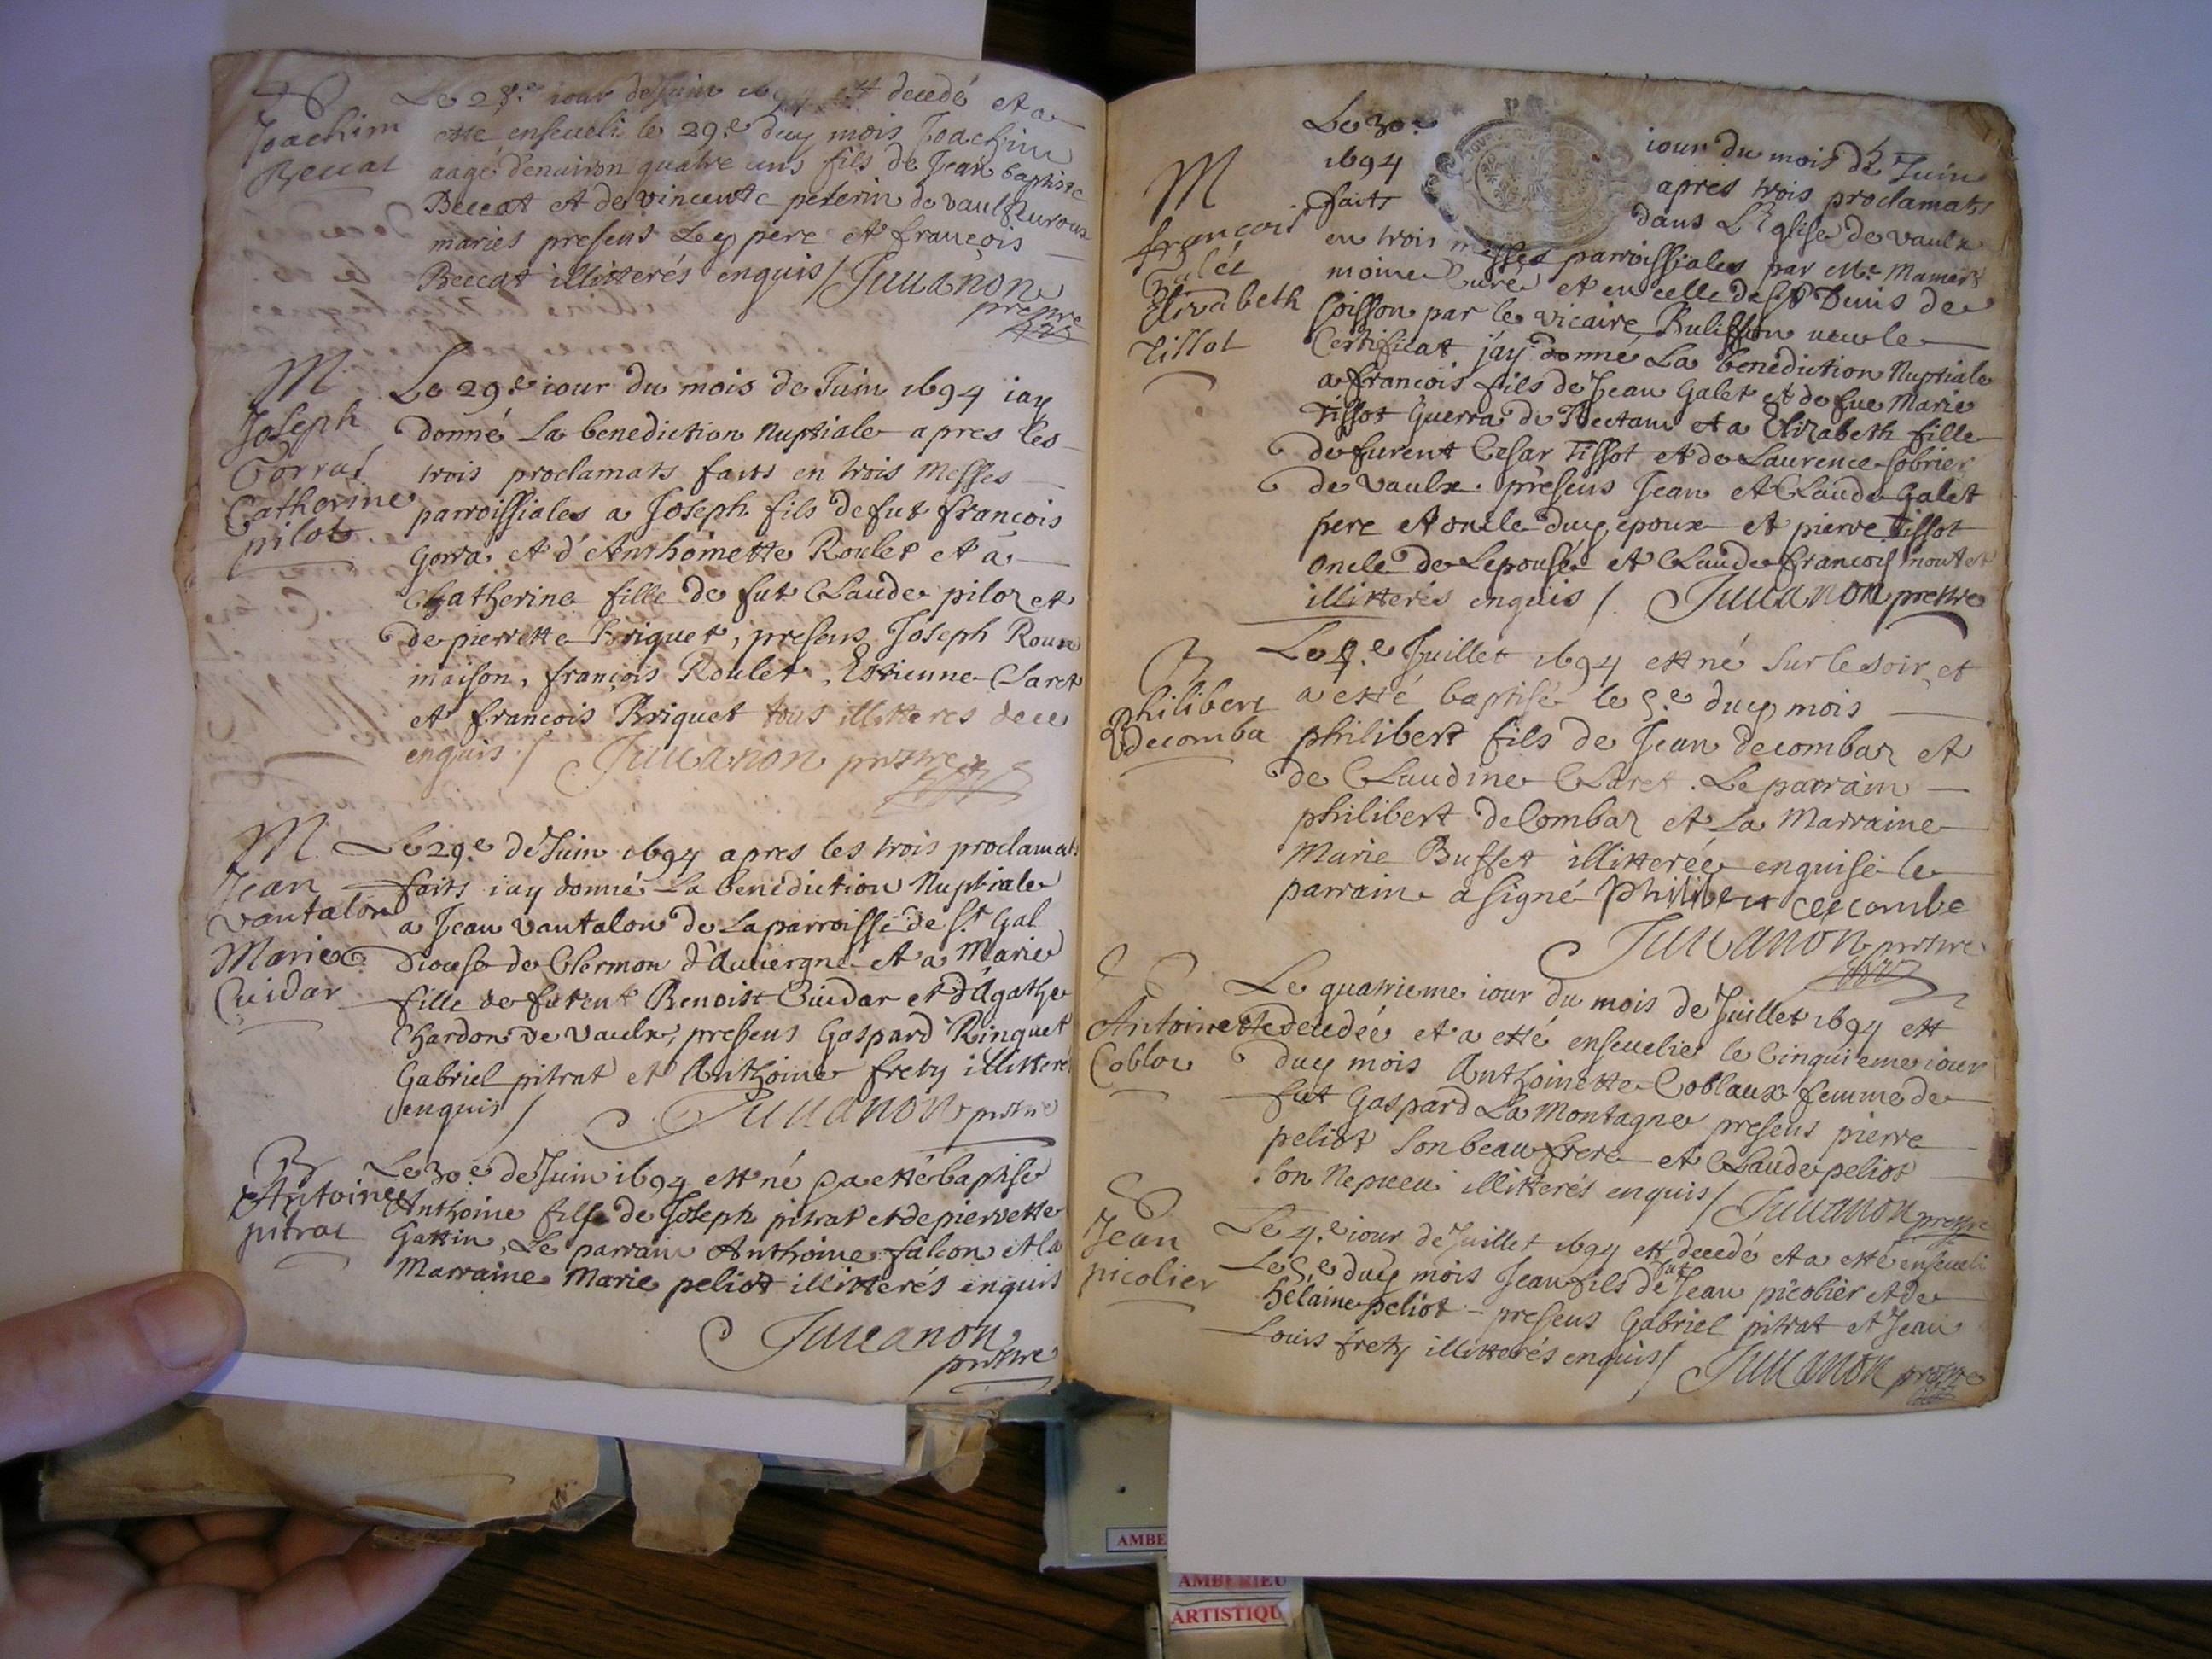 Joachim
Beccat
Le 28.e iour de Juin 1694 est decedé et a
esté enseueli le 29.e duy mois Joachim
aagé d'enuiron quatre ans fils de Jean baptiste
Beccat et de vincente pererin de vaulx
mariés presens Ley pere et françois
Beccat illitterés enquis / Juuanon
prestre
M
Joseph
Gorraz
Catherine
pilot
Le 29.e iour du mois de Juin 1694 iay
donné La benediction Nuptiale apres les
trois proclamats faits en trois Messes
parroissiales a Joseph fils de fut françois
Gorra et d'Anthoinette Roulet et a
Catherine fille de fut Claude piloz et
de pierrette Briquet, presens Joseph Roux
maison, françois Roulet, Estienne Claret
et francois Briquet tous illitteres de ce
enquis / Juuanon prestre
M
Jean
vantalon
Marie
Cuidar
Le 29.e de Juin 1694 apres les trois proclamats
faits iay donné La benediction Nuptiale
a Jean vantalon de La parroisse de St Gal
Diocese de Clermon d'Auuergne et a Marie
fille de furent Benoist Cuidar et d'Agathe
Chardon de vaulx, presens Gaspard Ringuet
Gabriel pitrat et Anthoine frety illitterés
enquis / Juuanon prestre
B
Antoine
pitrat
Le 30.e de Juin 1694 est né & a esté baptisé
Anthoine fils de Joseph pitrat et de pierrette
Gattin, Le parrain Anthoine falcon et la
Marraine Marie peliot illitterés enquis
Juuanon
prestre
M
françois
Galet
Elizabeth
Tissot
Le 30.e iour du mois de Juin
1694 apres trois proclamats
faits dans L'Eglise de vaulx
en trois messes parroissiales par Mr. Mamert
moine Curé et en celle de St Denis de
Coisson par le vicaire veu le
Certificat j'ay donné La benediction Nuptiale
a francois fils de Jean Galet et de fue Marie
Tissot Guerra de Bectan et a Elizabeth fille
de furent Cesar Tissot et de Laurence Sobrier
de vaulx. presens Jean et Claude Galet
pere et oncle duy epoux et pierre Tissot
oncle de L'epouse et Claude francois
illitterés enquis / Juuanon prestre
B
philibert
decomba
Le 4.e Juillet 1694 est né sur le soir, et
a esté baptisé le 5.e duy mois
philibert fils de Jean decombaz et
de Claudine Claret. Le parrain
philibert deCombaz et La Marraine
Marie Buffet illitterée enquise le
parrain a signé philibert decombe
Juuanon prestre
Antoinette
Coblou
Le quatrieme iour du mois de Juillet 1694 est
decedée et a esté enseuelie le Cinquieme iour
duy mois Anthoinette Coblaux femme de
fut Gaspard La Montagne presens pierre
peliot son beau frere et Claude peliot
son Nepueu illitterés enquis / Juuanon prestre
Jean
picolier
Le 4.e iour de Juillet 1694 est decedé et a esté enseueli
Le 5.e duy mois Jean fils de fut Jean picolier et de
helaine peliot - presens Gabriel pitrat et Jean
Louis frety illitterés enquis / Juuanon prestre
AMBE
AMBERIEU
ARTISTIQU